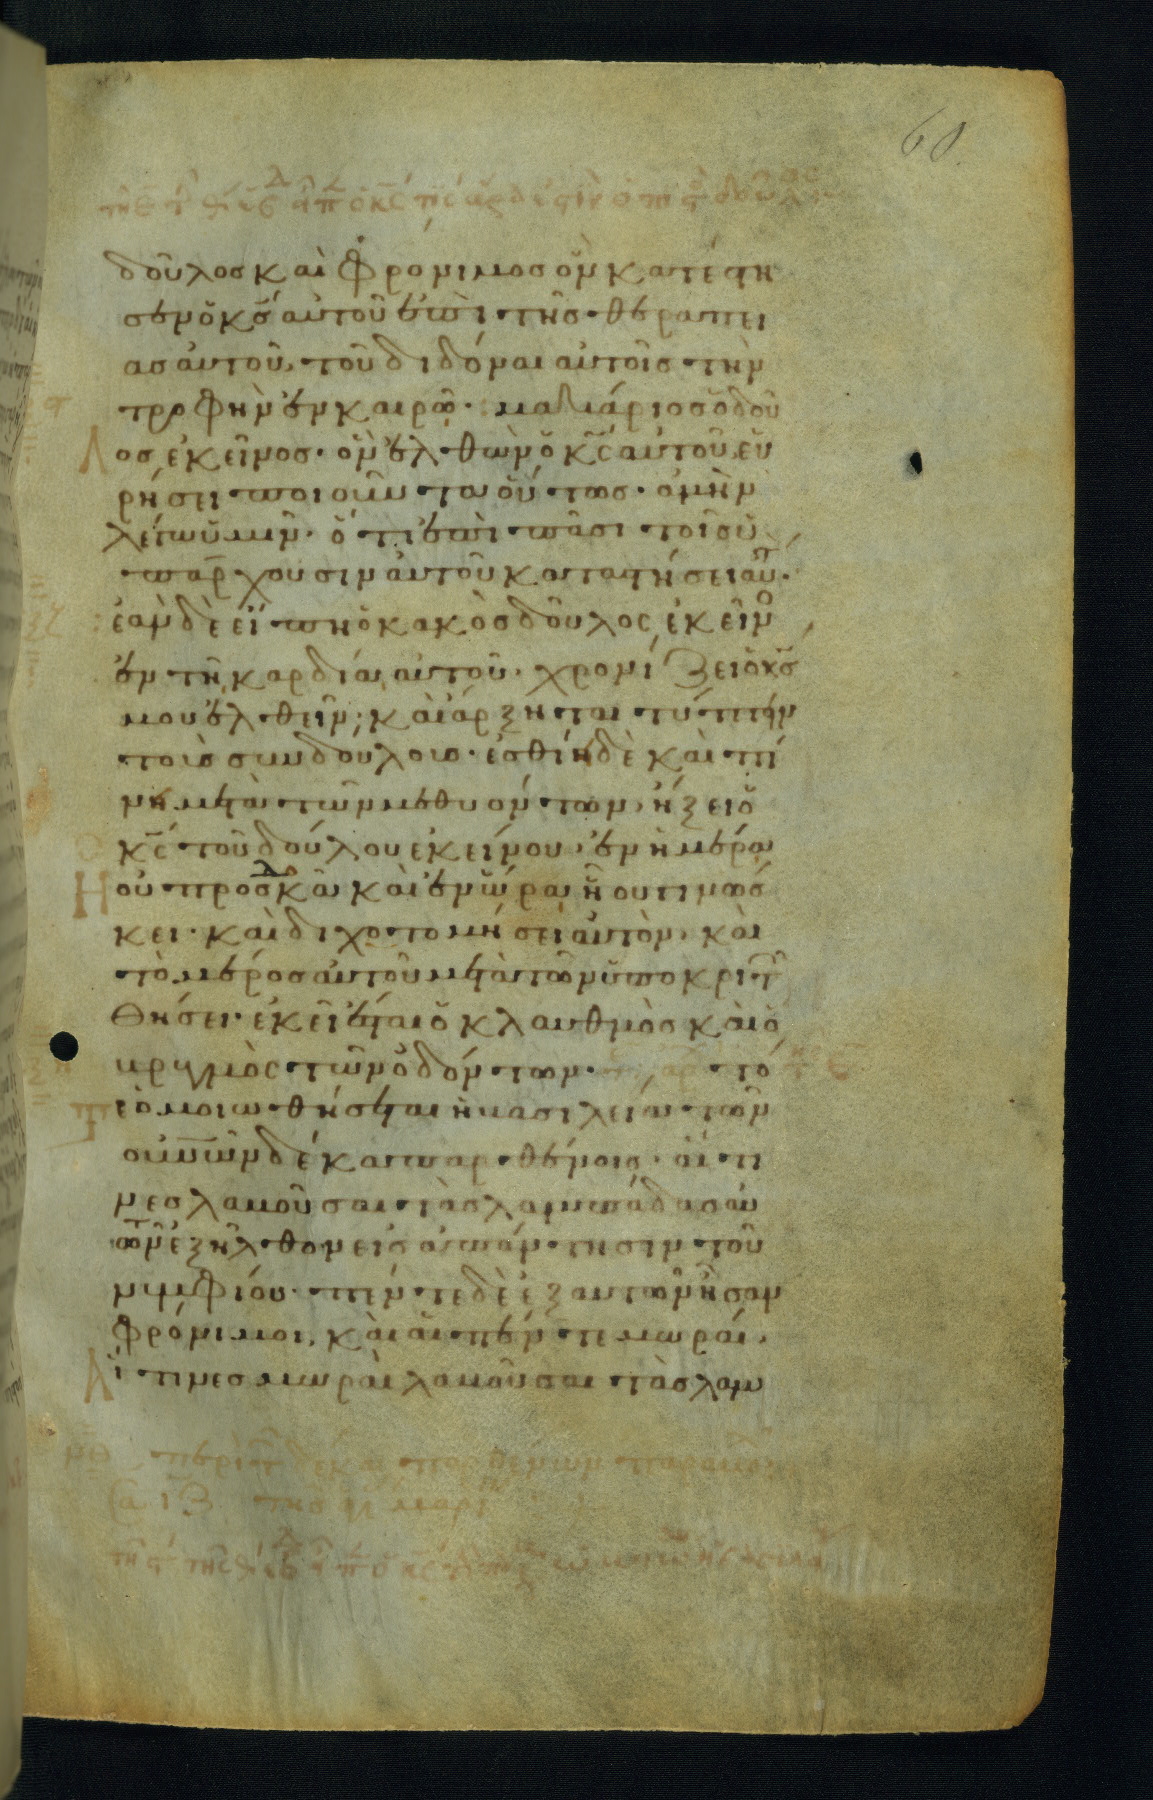 60.
δοῦλος καὶ φρόνιμος ὃν κατέστη
σεν ὁ κς αὐτοῦ ἐπὶ τῆς θεραπεί
ας αὐτοῦ, τοῦ διδόναι αὐτοῖς τὴν
τροφὴν ἐν καιρῷ· μακάριος ὁ δοῦ
λος ἐκεῖνος· ὃν ἐλθὼν ὁ κς αὐτοῦ εὑ
ρήσει ποιοῦντα οὕτως· ἀμὴν
λέγω ὑμῖν· ὅτι ἐπὶ πᾶσι τοῖς ὑ
πάρχουσιν αὐτοῦ καταστήσει αὐτ·
ἐὰν δὲ εἴπη ὁ κακὸς δοῦλος ἐκεῖνο
ἐν τῇ καρδίᾳ αὐτοῦ· χρονίζει ὁ κς
μου ἐλθεῖν· καὶ ἄρξηται τύπτειν
τοὺς συνδούλους· ἐσθίη δὲ καὶ πί
νη μετὰ τῶν μεθυόντων, ἥξει ὁ
κς τοῦ δούλου ἐκείνου· ἐν ἡμέρᾳ
ᾗ οὐ προσδοκᾷ καὶ ἐν ὥρᾳ ᾗ οὐ γινώσ
κει· καὶ διχοτομήσει αὐτὸν, καὶ
τὸ μέρος αὐτοῦ μετὰ τῶν ὑποκριτ
θήσει· ἐκεῖ ἔσται ὁ κλαυθμὸς καὶ ὁ
βρυγμὸς τῶν ὀδόντων· τό
τε ὁμοιωθήσεται ἡ βασιλεία τῶν
οὐνῶν δέκα παρθένοις· αἵτι
νες λαβοῦσαι τὰς λαμπάδας αὐ
τῶν ἐξῆλθον εἰς ἀπάντησιν τοῦ
νυμφίου· πέντε δὲ ἐξ αὐτῶν ἦσαν
φρόνιμοι, καὶ αἱ πέντε μωραί·
Αἵτινες μωραὶ λαβοῦσαι τὰς λαμ
μθ περὶ τ δέκα παρθένων